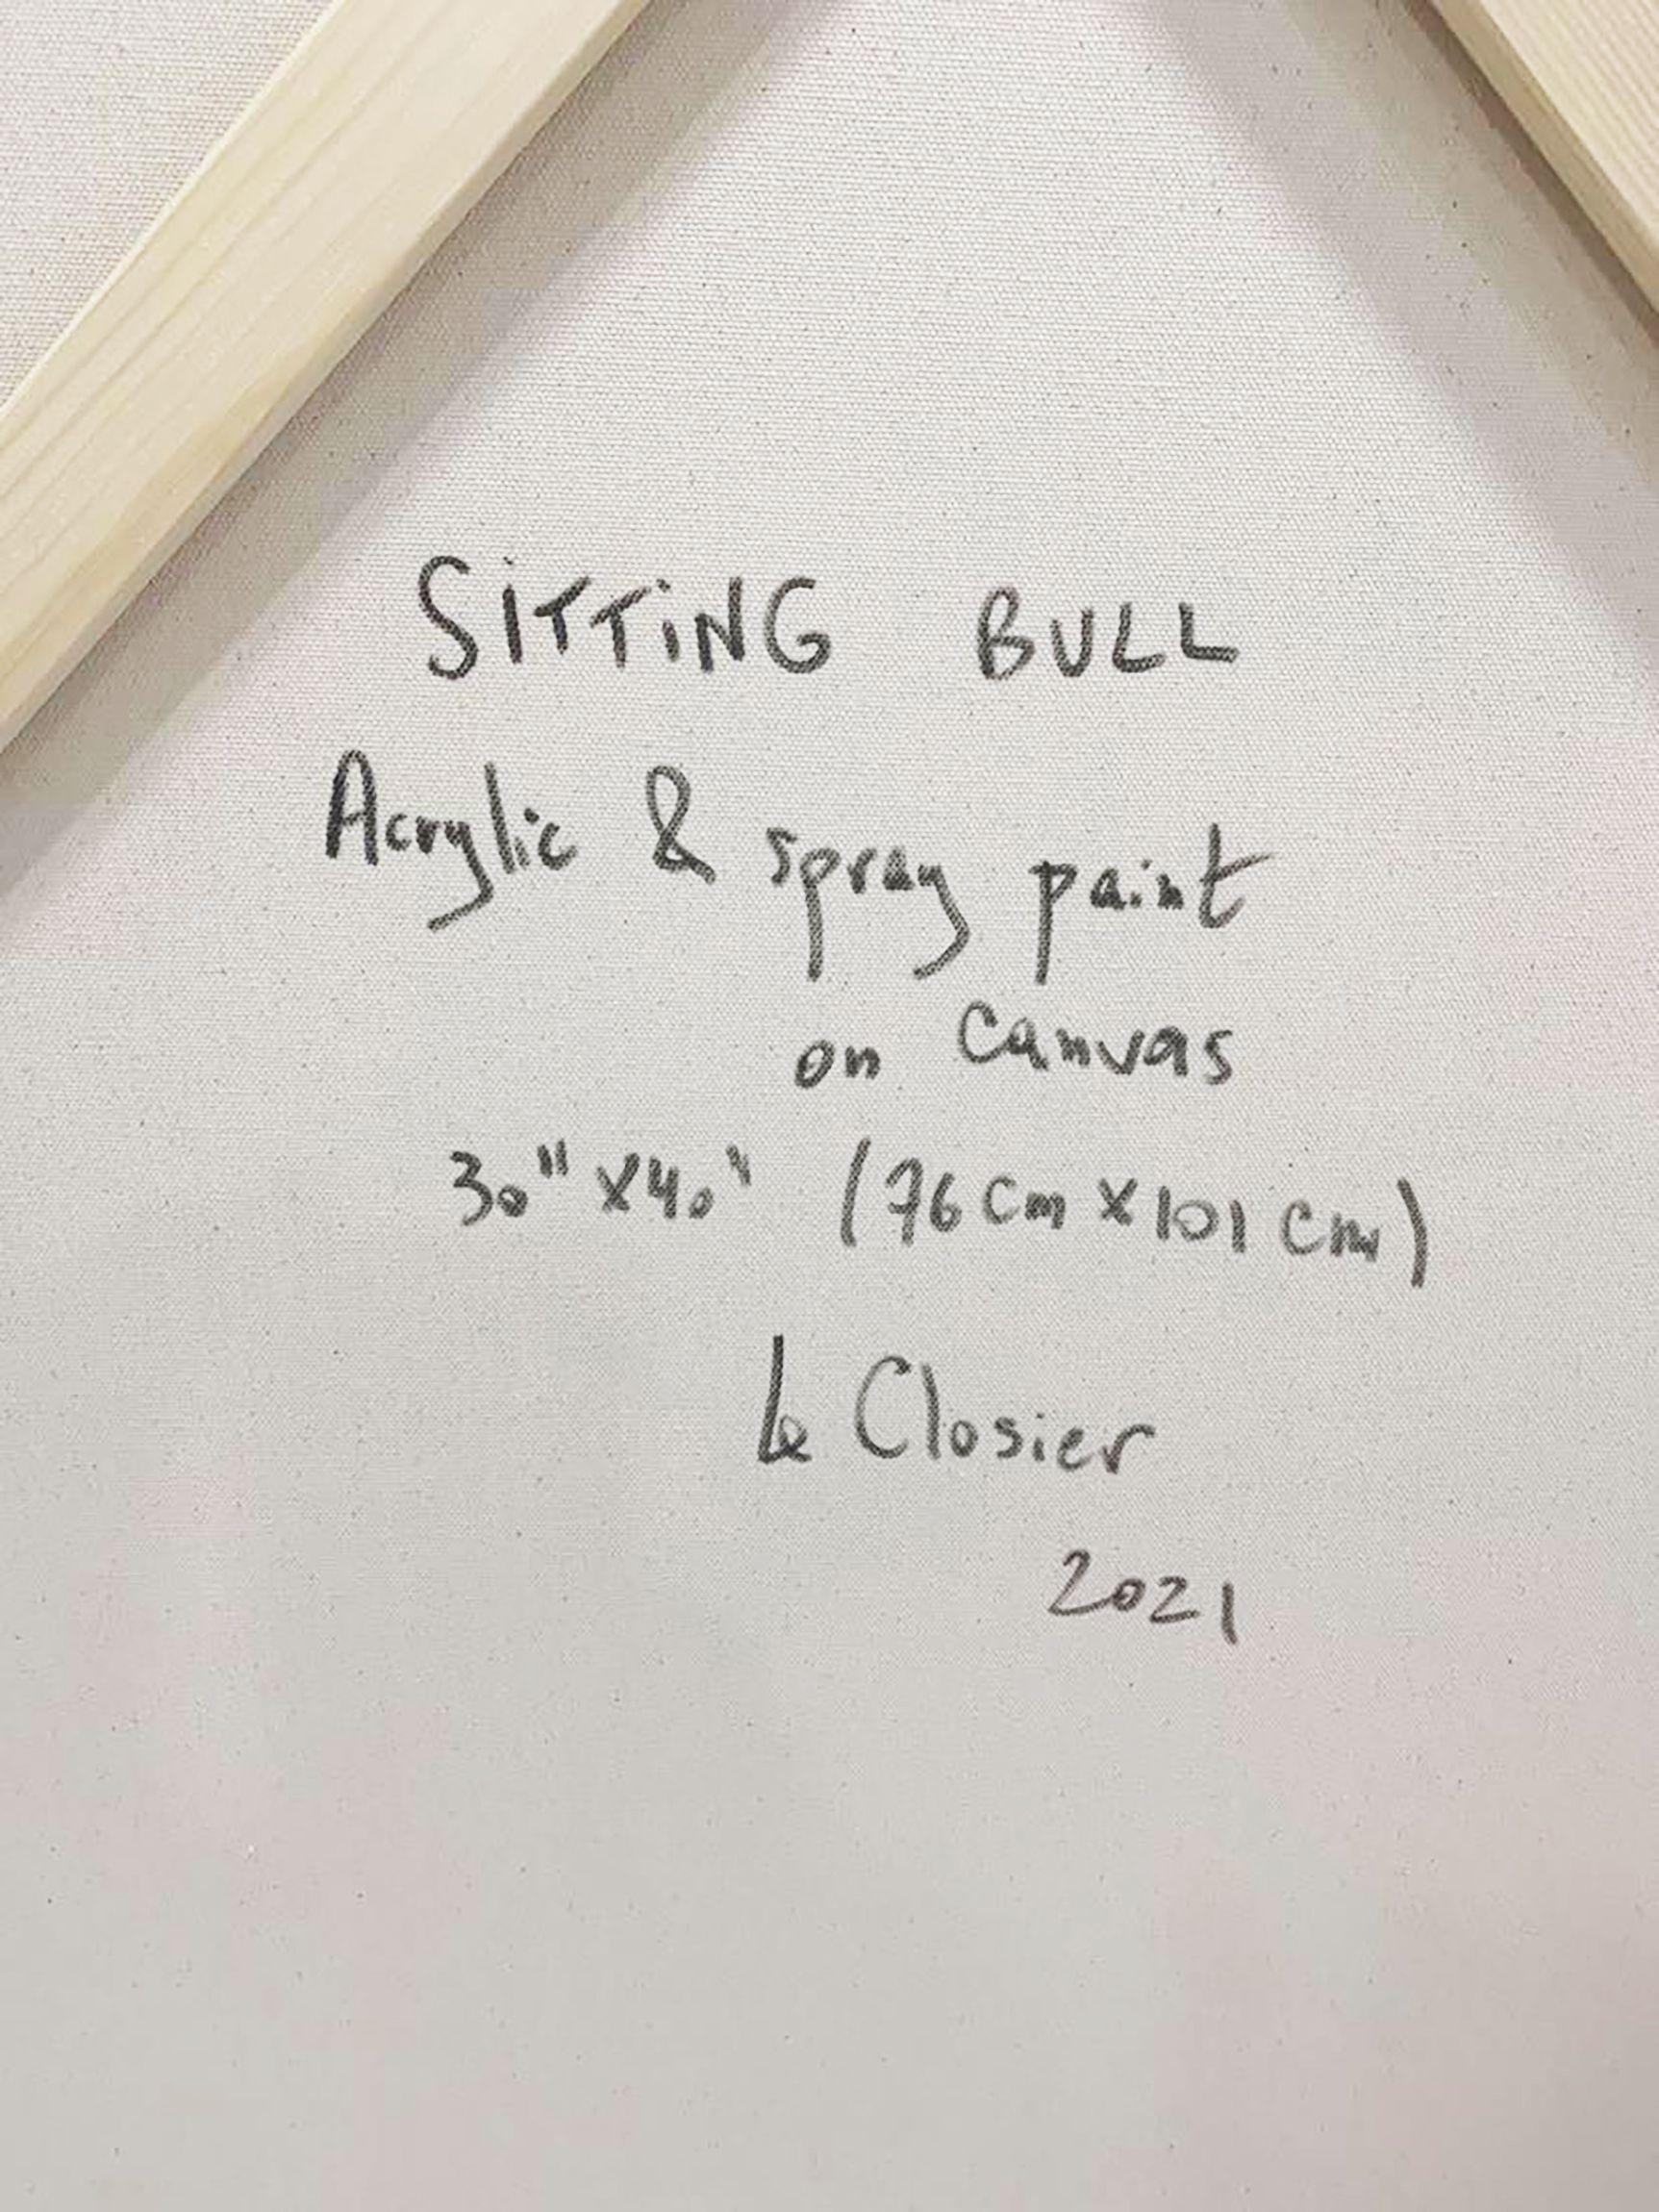 SiTTiNG BULL
Acrylic & spray paint
on Canvas
30" x 40" (76 cm x 101 cm)
Le Closier
2021